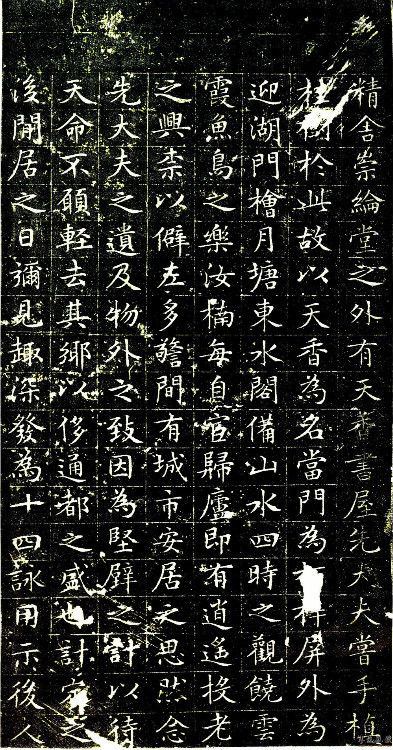 精舍崇綸堂之外有天香書屋先大夫嘗手植
桂樹於此故以天香為名當門為樨屏外為
迎湖門檜月塘東水閣備山水四時之觀饒雲
霞魚鳥之樂汝楠每自官歸廬即有逍遙投老
之興柰以僻左多警間有城市安居之思然念
先大夫之遺及物外之致因為堅壁之計以待
天命不願輕去其鄉以侈通都之盛也計定之
後閒居之日彌見趣深發為十四詠用示後人